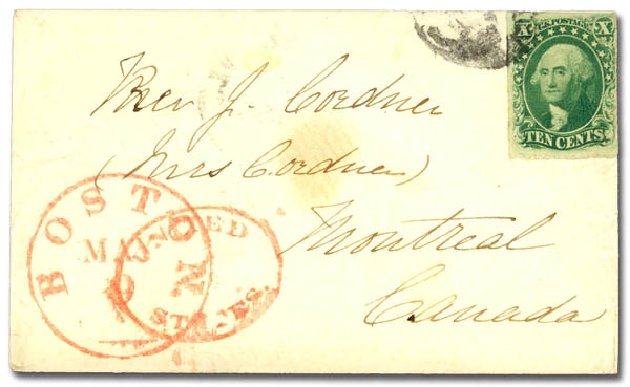 X U.S. POSTAGE X
TEN CENTS
Rev J. Cordner
(Mrs Cordner)
Montreal
Canada
BOSTON
UNITED
STATES.